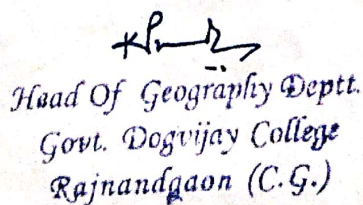 Head Of Geography Deptt.
Govt. Dogvijay College
Rajnandgaon (C.G.)